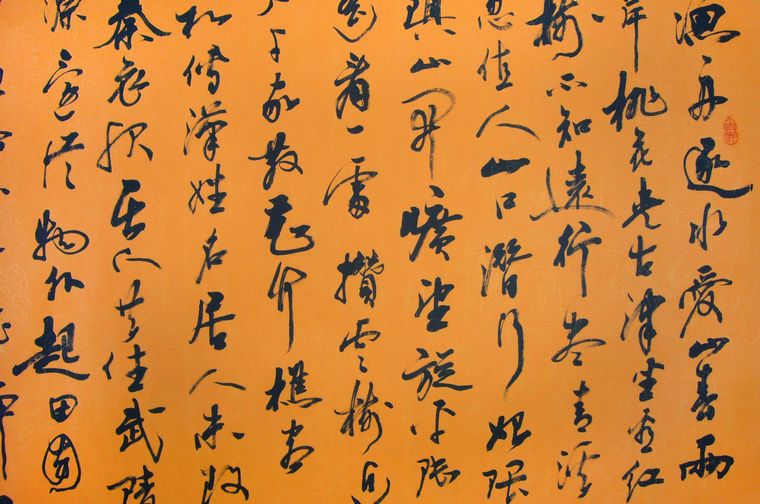 漁舟逐水愛山春兩
岸桃花夾古津坐看紅
樹不知遠行盡青溪
忽值人山口潛行始隈
隩山開曠望旋平陸
遙看一處攢雲樹近
入千家散花竹樵客
初傳漢姓名居人未改
秦衣服居人共住武陵
源還從物外起田園